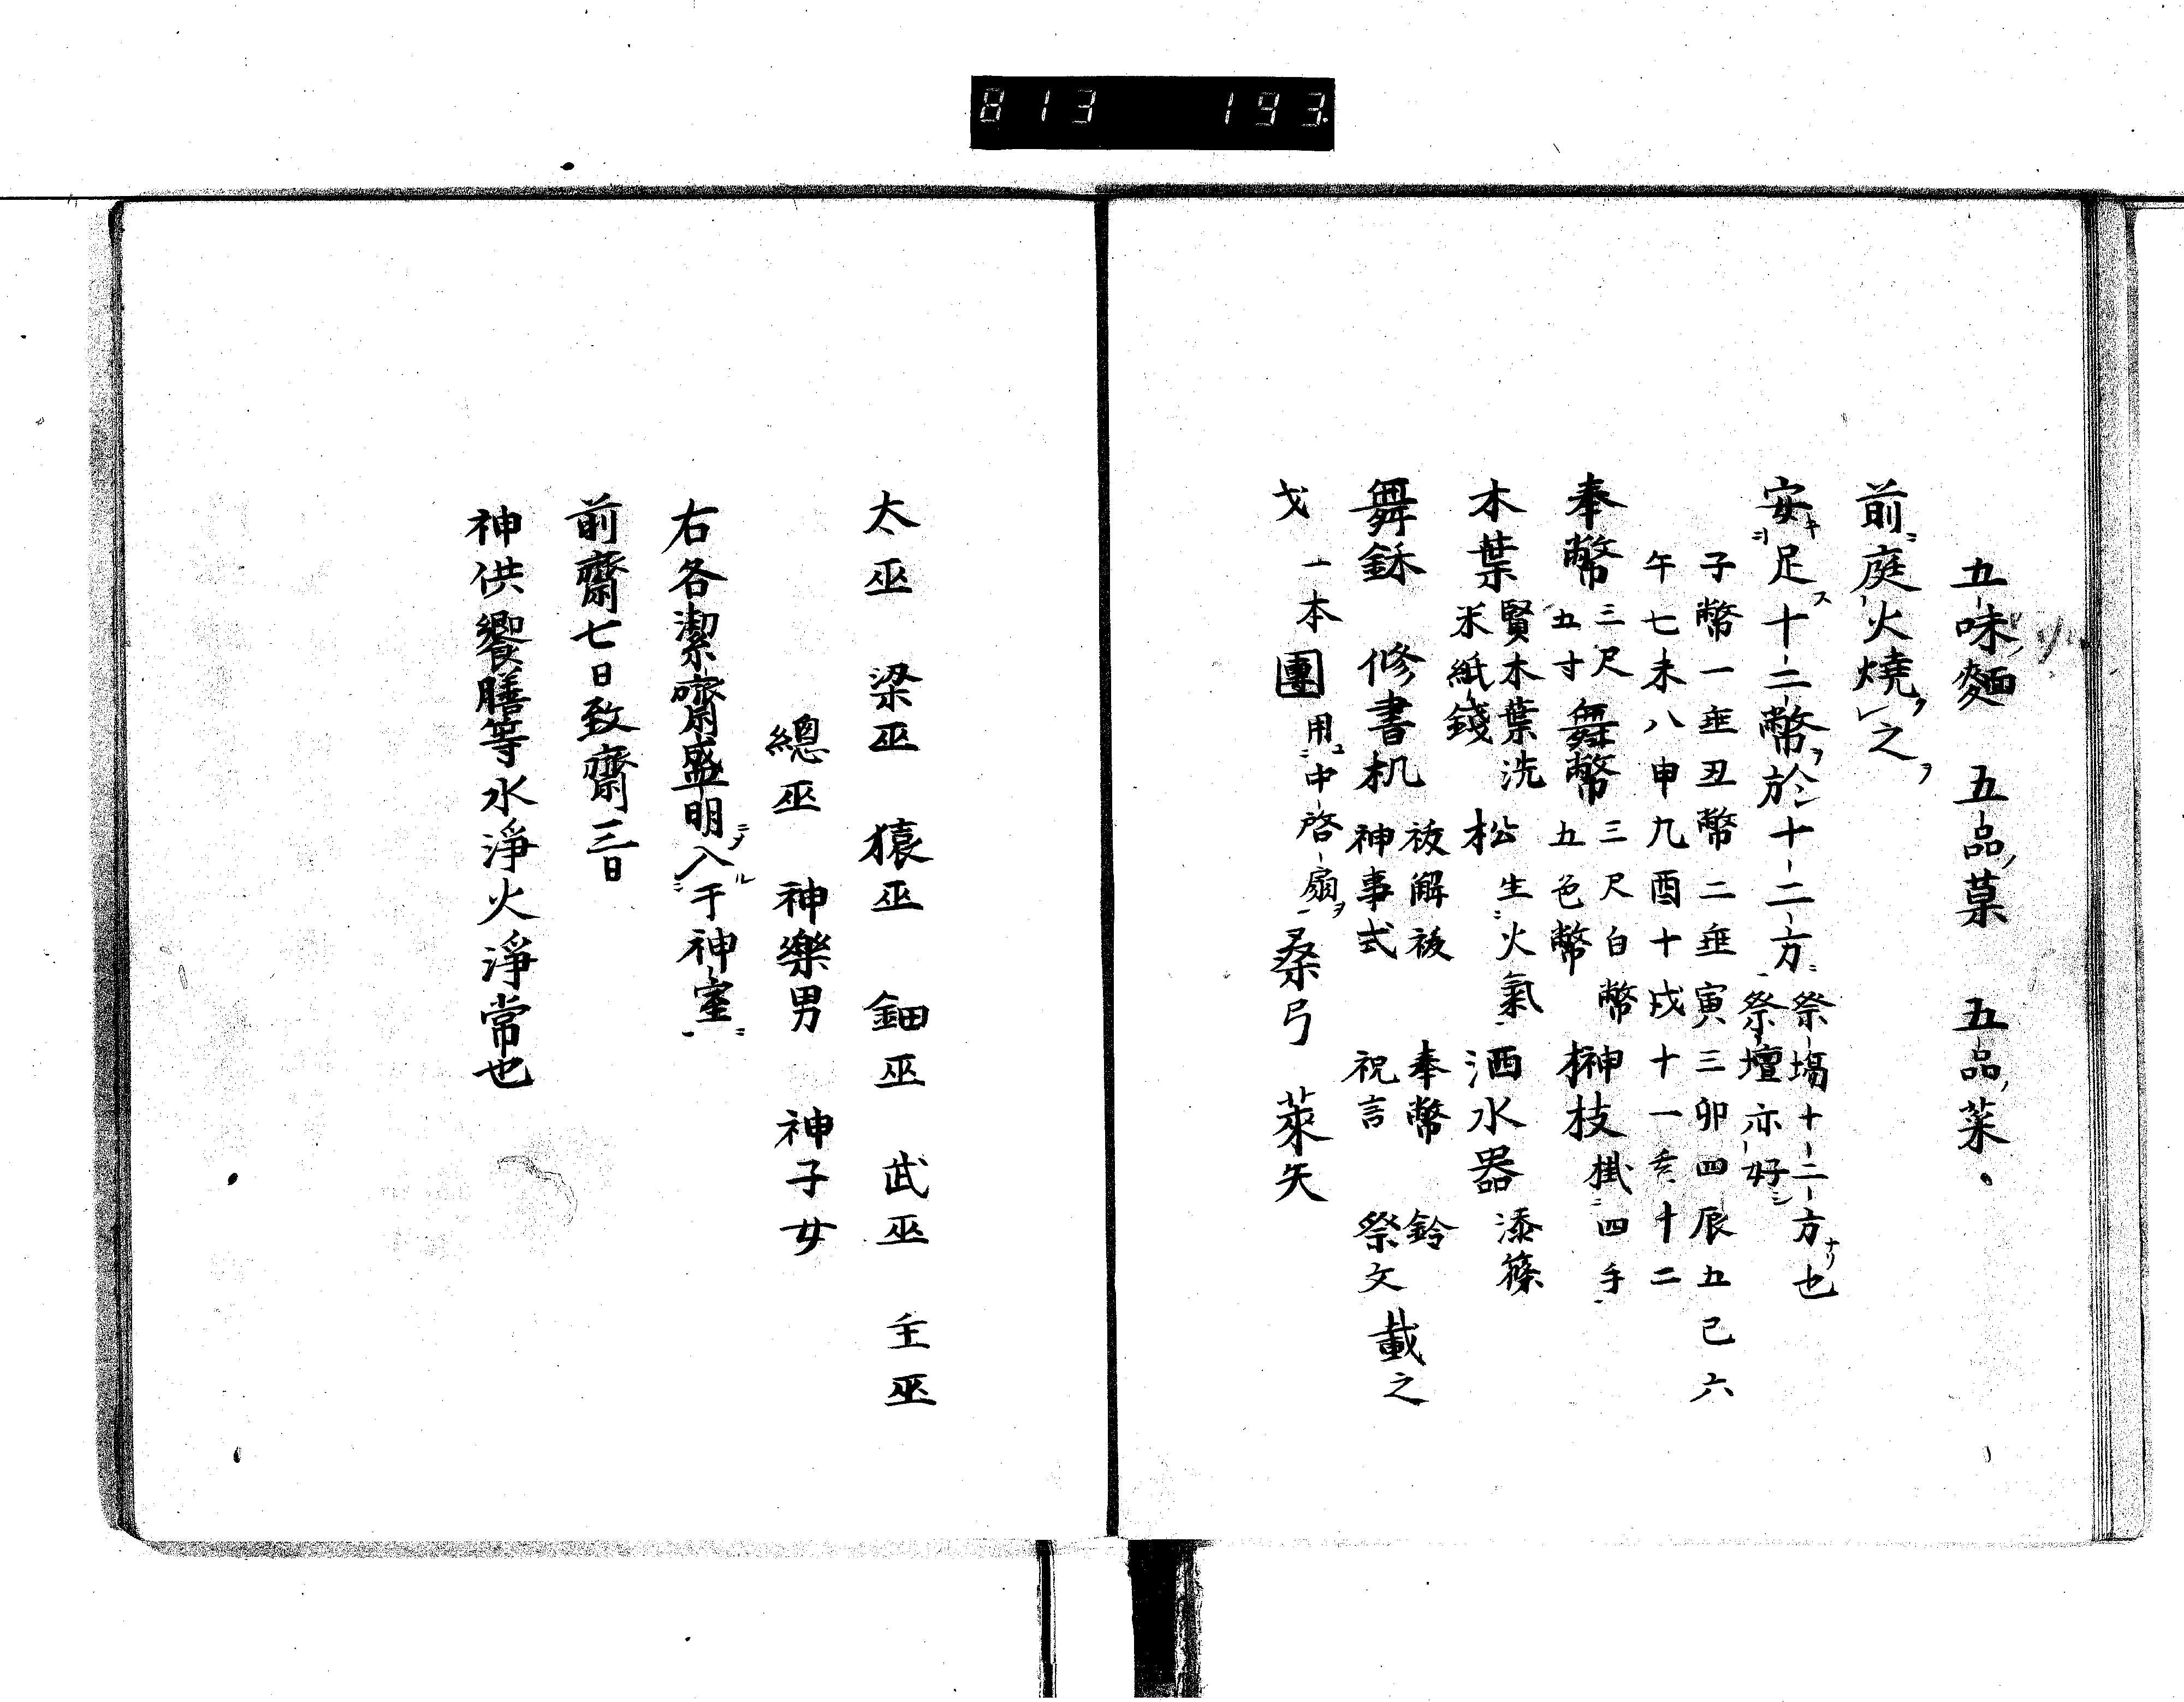 813 193.
五味麵 五品菓 五品菜。
前ニ庭火燒レ之ヲ
安足ス十二幣ヲ於十二方ニ 祭場十二方ナリ也
祭壇亦好シ
子幣一垂丑幣二垂寅三卯四辰五巳六
午七未八申九酉十戌十一亥十二
奉幣 三尺五寸 舞幣 三尺白幣五色幣 榊枝 掛四手
木葉 賢木葉洗米紙錢 松 生火氣 洒水器 漆篠
舞鉌 修書机 祓解祓 奉幣 鈴
神事式 祝言 祭文 載之
戈 一本 團 用中啓扇ヲ 桑弓 萊矢
太巫 梁巫 猿巫 鈿巫 武巫 主巫
總巫 神樂男 神子女
右各潔齋盛明ニヲ入ル于神室ニ
前齋七日致齋三日
神供饗膳等水淨火淨常也